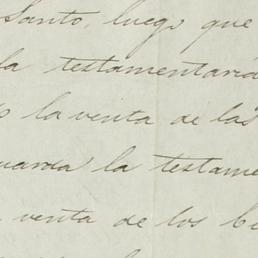 Santo, luego que
la testamentaría
la venta de las
la testame
venta de los bi